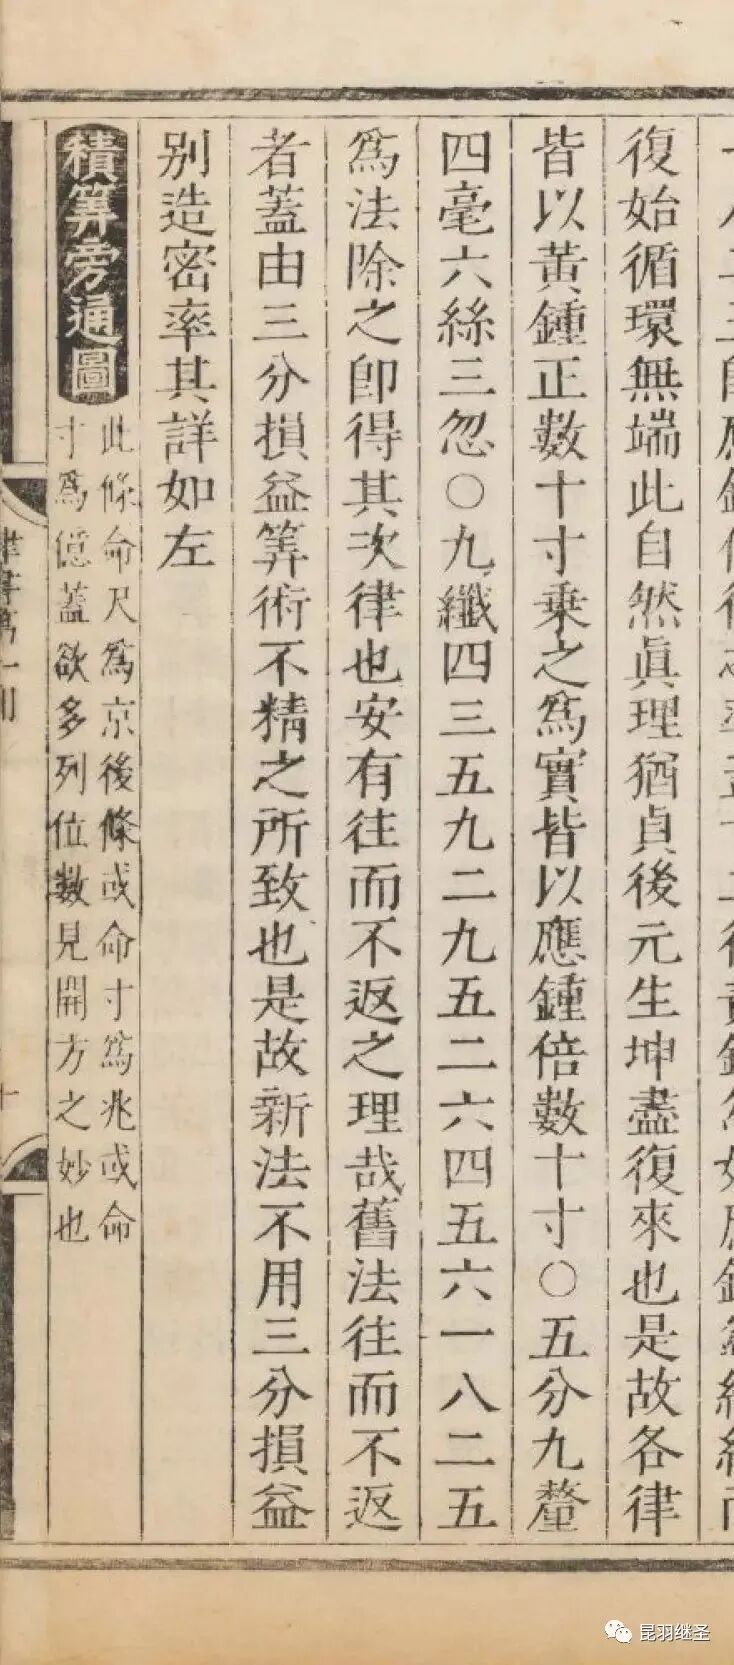 復始循環無端此自然眞理猶貞後元生坤盡復來也是故各律
皆以黃鍾正數十寸乘之爲實皆以應鍾倍數十寸○五分九釐
四毫六絲三忽○九纖四三五九二九五二六四五六一八二五
爲法除之卽得其次律也安有往而不返之理哉舊法往而不返
者蓋由三分損益筭術不精之所致也是故新法不用三分損益
別造密率其詳如左
積筭旁通圖
此條命尺爲京後條或命寸爲兆或命
寸爲億蓋欲多列位數見開方之妙也
昆羽继圣